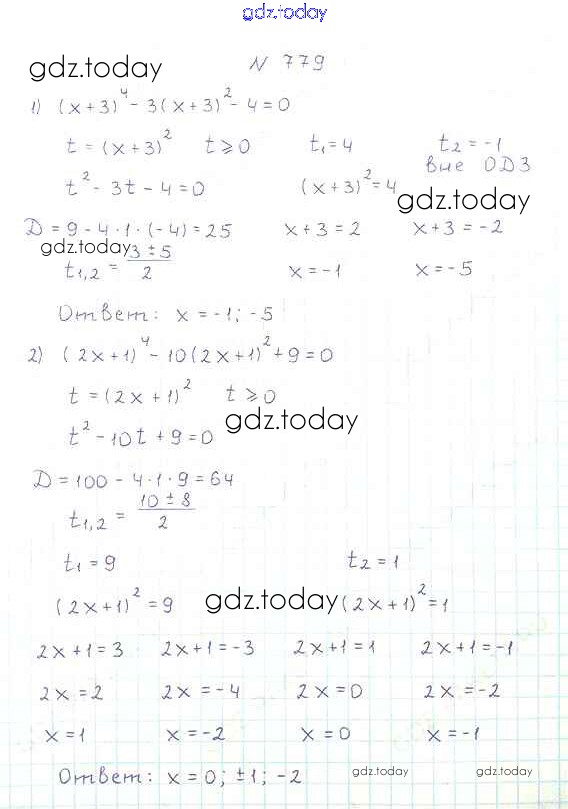 gdz.today
gdz.today
N 779
1) (x+3)⁴ - 3(x+3)² - 4 = 0
t = (x+3)² t ⩾ 0 t₁ = 4 t₂ = -1
вне ОДЗ
t² - 3t - 4 = 0 (x+3)² = 4
gdz.today
D = 9 - 4·1·(-4) = 25 x+3 = 2 x+3 = -2
gdz.today
t₁,₂ = (3 ± 5)/2 x = -1 x = -5
Ответ: x = -1; -5
2) (2x+1)⁴ - 10(2x+1)² + 9 = 0
t = (2x+1)² t ⩾ 0
gdz.today
t² - 10t + 9 = 0
D = 100 - 4·1·9 = 64
t₁,₂ = (10 ± 8)/2
t₁ = 9 t₂ = 1
(2x+1)² = 9 gdz.today (2x+1)² = 1
2x+1 = 3 2x+1 = -3 2x+1 = 1 2x+1 = -1
2x = 2 2x = -4 2x = 0 2x = -2
x = 1 x = -2 x = 0 x = -1
Ответ: x = 0; ±1; -2 gdz.today gdz.today